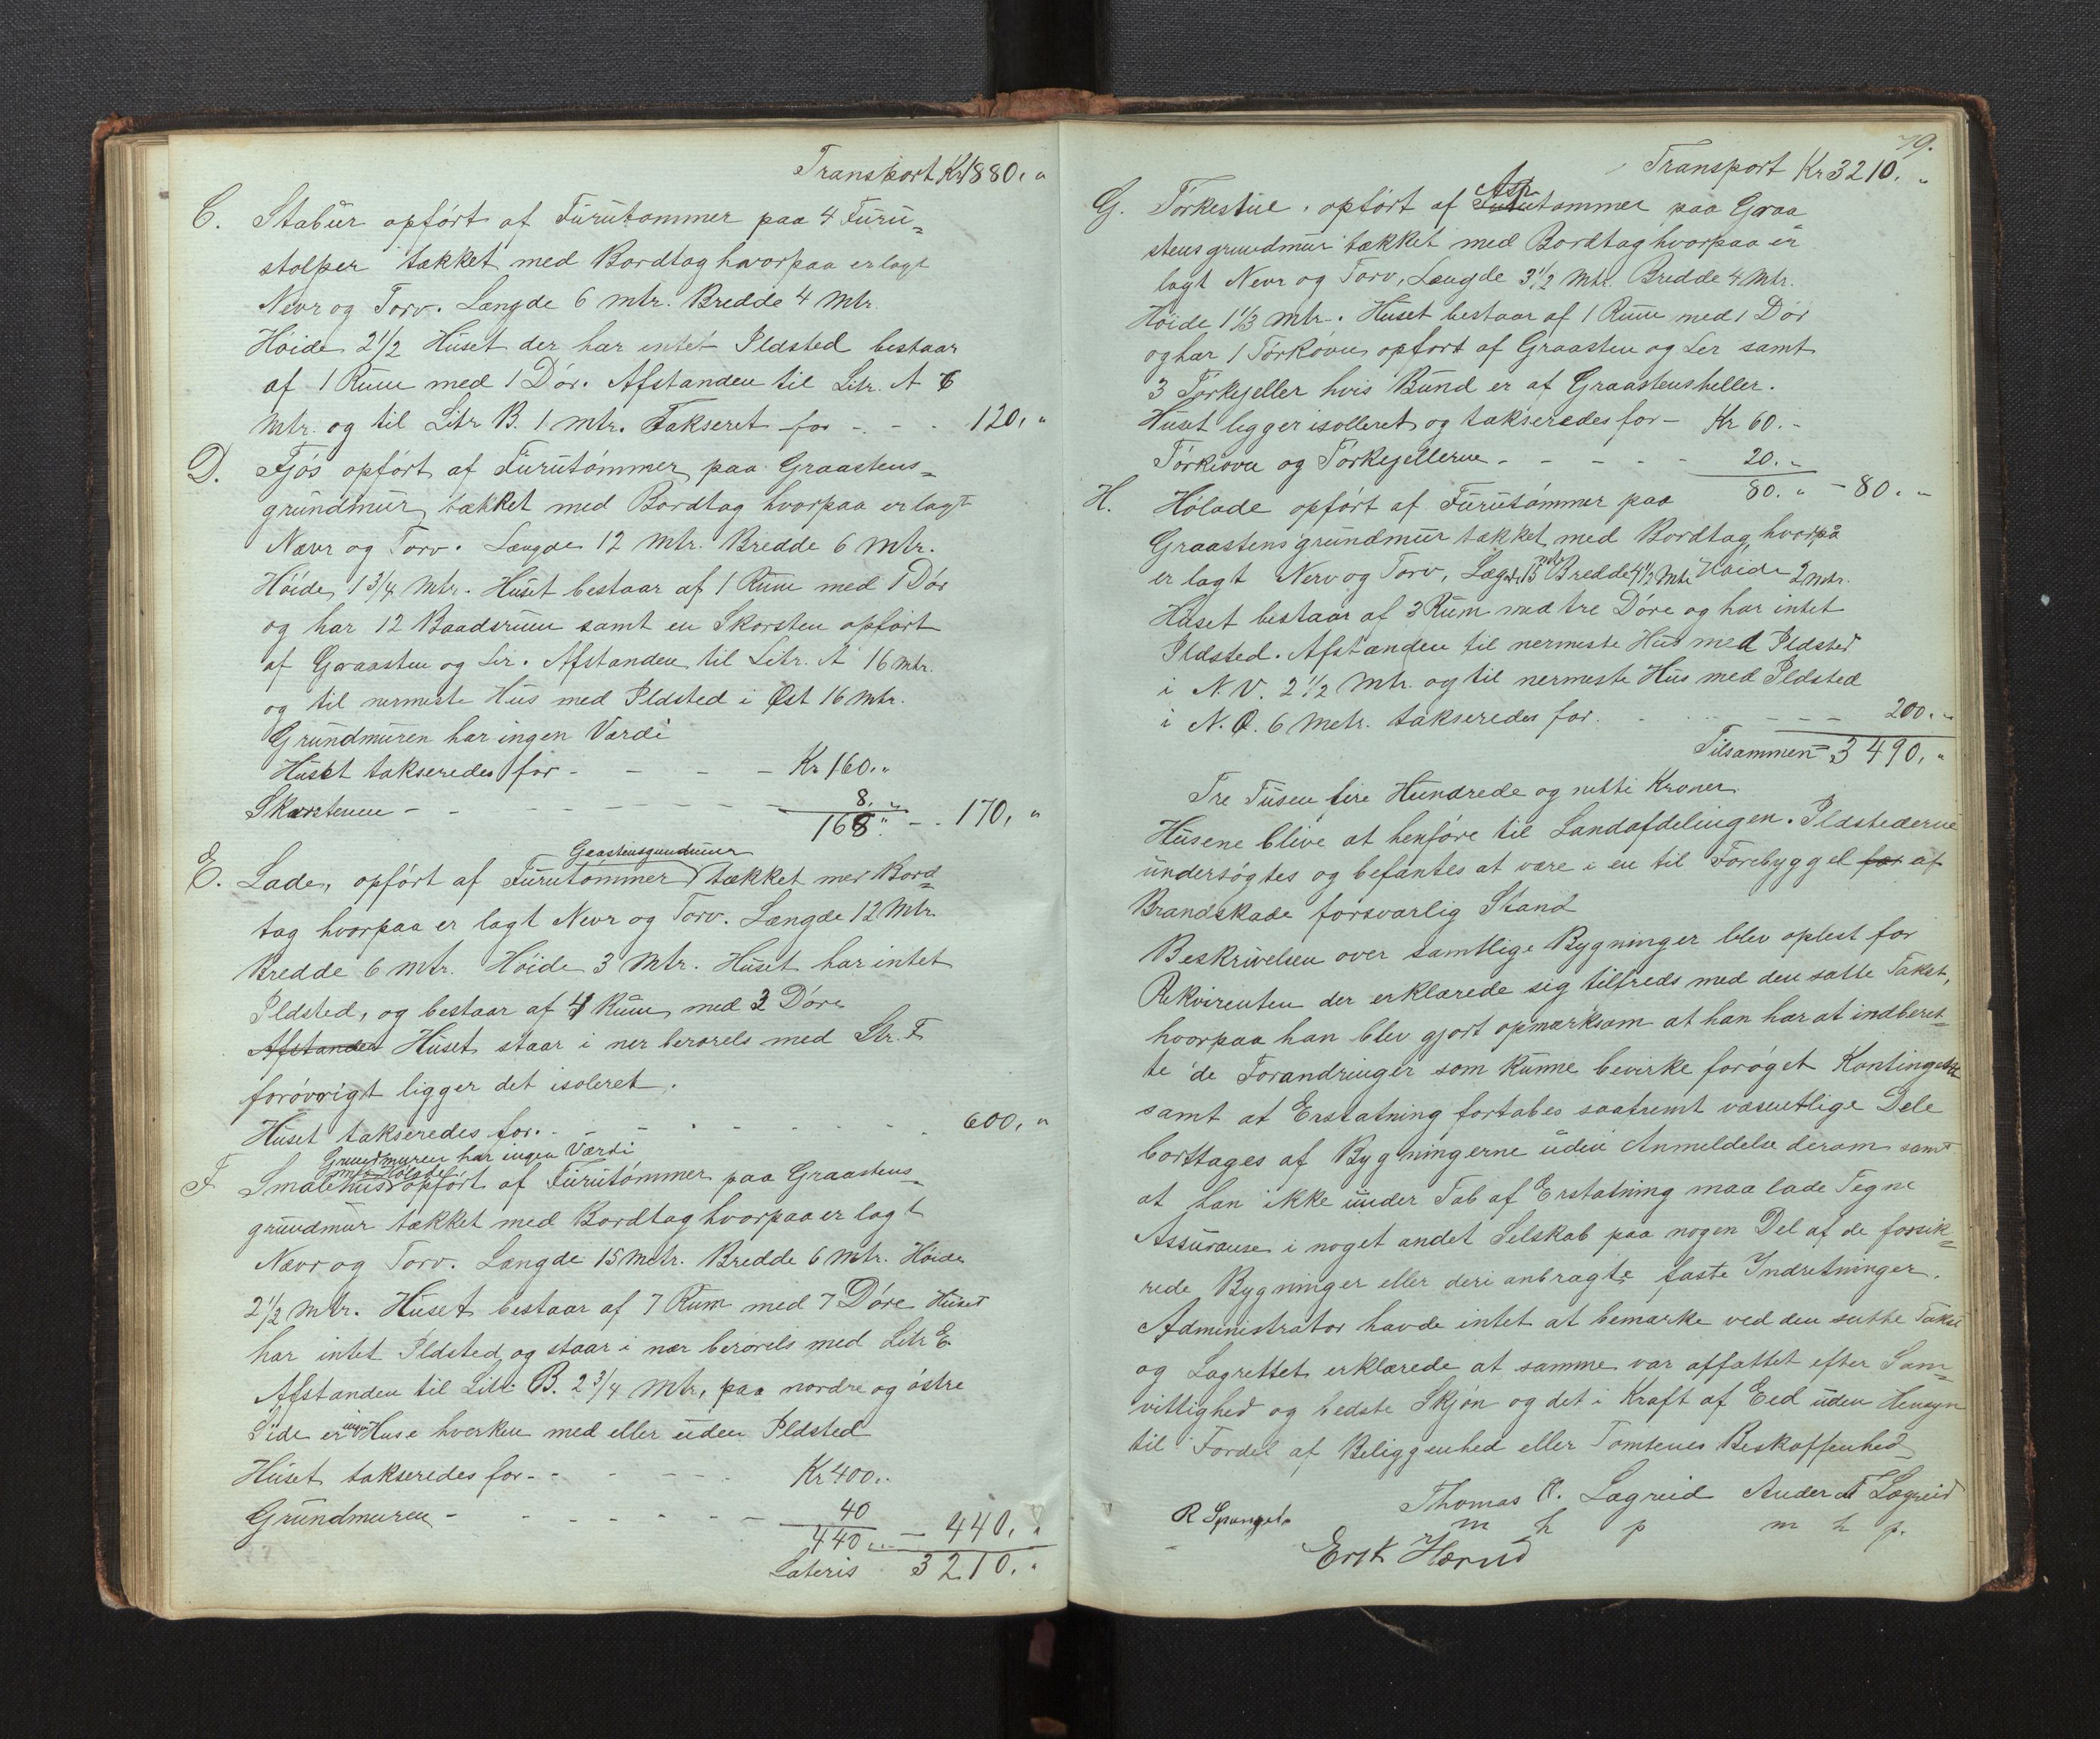 Transport Kr 1880. "
C. Stabur opført af Furutømmer paa 4 Furu=
stolper tækket med Bordtag hvorpaa er lagt
Nevr og Torv. Længde 6 mtr. Bredde 4 Mtr.
Høide 2 1/2 Huset der har intet Ildsted bestaar
af 1 Rum med 1 Dør. Afstanden til Litr. A 6
Mtr. og til Litr B. 1 mtr. Takseret for - - - 120, "
D. Fjøs opført af Furutømmer paa Graastens=
grundmur, tækket med Bordtag hvorpaa er lagt
Nævr og Torv. Længde 12 Mtr. Bredde 6 Mtr.
Høide 1 3/4 Mtr. Huset bestaar af 1 Rum med 1 Dør
og har 12 Baadsrum samt en Skorsten opført
af Graasten og Ler. Afstanden til Litr. A 16 mtr.
og til nermeste Hus med Ildsted i Øst 16 Mtr.
Grundmuren har ingen Værdi
Huset takseredes for - - - - Kr 160. "
Skorstenen - - - - - - - - 8. "
168 " - - 170, "
Graastensgrundmur
E. Lade, opført af Furutømmer tækket med Bord=
tag hvorpaa er lagt Nevr og Torv. Længde 12 Mtr.
Bredde 6 mtr. Høide 3 Mtr. Huset har intet
Ildsted, og bestaar af 4 Rum med 3 Døre
Afstanden Huset staar i nær berørels med Ltr. F
forøvrigt ligger det isoleret.
Huset takseredes for. - - - - - - - 600, "
Grundmuren har ingen Værdi
med Hølade
F Smalehus opført af Furutømmer paa Graastens=
grundmur tækket med Bordtag hvorpaa er lagt
Nævr og Torv. Længde 15 Metr. Bredde 6 Mtr. Høide
2 1/2 Mtr. Huset bestaar af 7 Rum med 7 Døre Huset
har intet Ildsted og staar i nær berørels med Litr E
Afstanden til Litr B. 2 3/4 Mtr, paa nordre og østre
Side er ingen Huse hverken med eller uden Ildsted
Huset takseredes for - - - - - Kr 400. "
Grundmuren - - - - - - - 40
440 " - 440, "
Lateris 3210. "
79.
Transport Kr 3210. "
Asp
G. Tørkestue. opført af Furutømmer paa Graa
stensgrundmur tækket med Bordtag hvorpaa er
lagt Nevr og Torv, Længde 3 1/2 Mtr. Bredde 4 Mtr.
Høide 1 1/3 Mtr. Huset bestaar af 1 Rum med 1 Dør
og har 1 Tørkovn opført af Graasten og Ler samt
3 Tørkejeller hvis Bund er af Graastensheller.
Huset ligger isolleret og takseredes for - Kr 60. -
Tørkeovn og Tørkejellerne - - - - - 20. "
80. " - 80. "
H. Hølade opført af Furutømmer paa
Graastensgrundmur tækket med Bordtag, hvorpå
er lagt Nerv og Torv, Lægde 15 mtr Bredde 4 1/2 Mtr Høide 2 mtr.
Huset bestaar af 3 Rum med tre Døre og har intet
Ildsted. Afstanden til nermeste Hus med Ildsted
i N. V. 2 1/2 Mtr. og til nermeste Hus med Ildsted
i N. Ø. 6 Metr. takseredes for. - - - - - 200. "
Tilsammen = 3490, "
Tre Tusen fire Hundrede og nitti Kroner
Husene blive at henføre til Landafdelingen. Ildstederne
undersøgtes og befantes at være i en til Forebyggel for af
Brandskade forsvarlig Stand
Beskrivelsen over samtlige Bygninger blev oplest for
Rekvirenten der erklærede sig tilfreds med den satte Takst,
hvorpaa han blev gjort opmærksom at han har at indberet=
te de Forandringer som kunne bevirke forøget Kontingent
samt at Erstatning fortabes saafremt væsentlige Dele
borttages af Bygningerne uden Anmeldelse derom samt
at han ikke under Tab af Erstatning maa lade Tegne
Assuranse i noget andet Selskab paa nogen Del af de forsik=
rede Bygninger eller deri anbragte faste Indretninger.
Administrator havde intet at bemærke ved den satte Takst
og Lagrettet erklærede at samme var affattet efter Sam=
vittighed og bedste Skjøn og det i Kraft af Eed uden Hensyn
til Fordel af Beliggenhed eller Tomtenes Beskaffenhed
Thomas O. Lægreid Anders T Lægreid
R Spangelo m h p m h p.
Erik Hærud